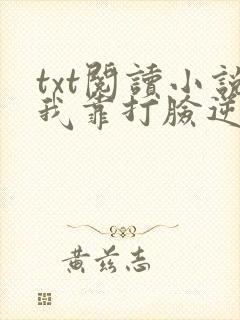 txt閱讀小說
我靠打臉逆
黃茲志